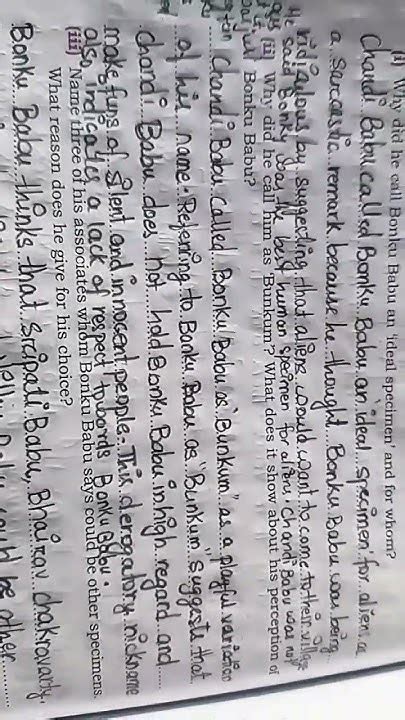 (i) Why did he call Bonku Babu an 'ideal specimen' and for whom?
Chandi Babu called Bonku Babu an 'ideal specimen' for alien, a
a sarcastic remark because he thought Bonku Babu was being
ridiculous by suggesting that aliens would want to come to their village
he said Bonku Babu is the best human specimen for alien, Chandi Babu was
(ii) Why did he call him as 'Bunkum'? What does it show about his perception of
Bonku Babu?
Chandi Babu called Bonku Babu as "Bunkum" as a playful variation
of his name. Referring to Bonku Babu as "Bunkum" suggests that
Chandi Babu does not hold Bonku Babu in high regard and
make funs of silent and innocent people. This derogatory nickname
also indicates a lack of respect towards Bonku Babu.
(iii) Name three of his associates whom Bonku Babu says could be other specimens.
What reason does he give for his choice?
Bonku Babu thinks that Sripati Babu, Bhairav Chakravarty,
could be other